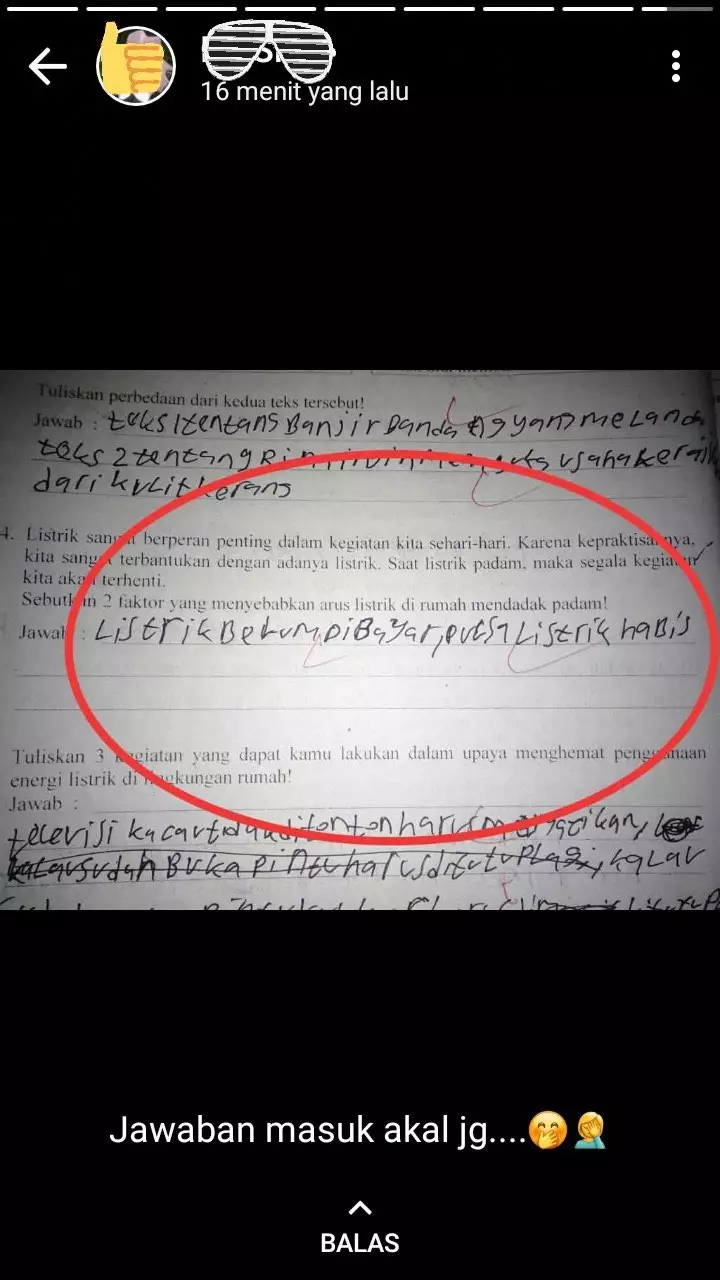 16 menit yang lalu
Tuliskan perbedaan dari kedua teks tersebut!
Jawab : teks 1 tentang Banjir Dan yang meLand
teks 2 tentang usaha kerajin
dari kulit kerang
4. Listrik sangat berperan penting dalam kegiatan kita sehari-hari. Karena kepraktisannya,
kita sangat terbantukan dengan adanya listrik. Saat listrik padam, maka segala kegiatan
kita akan terhenti.
Sebutkan 2 faktor yang menyebabkan arus listrik di rumah mendadak padam!
Jawab : Listrik BeLum DiBayar, pulsa Listrik haBis
Tuliskan 3 kegiatan yang dapat kamu lakukan dalam upaya menghemat penggunaan
energi listrik di lingkungan rumah!
Jawab :
televisi kalau tidak ditonton harus matikan,
kalau sudah Buka Pintu harus ditutup lagi, kalau
Jawaban masuk akal jg....🤭🤦
BALAS